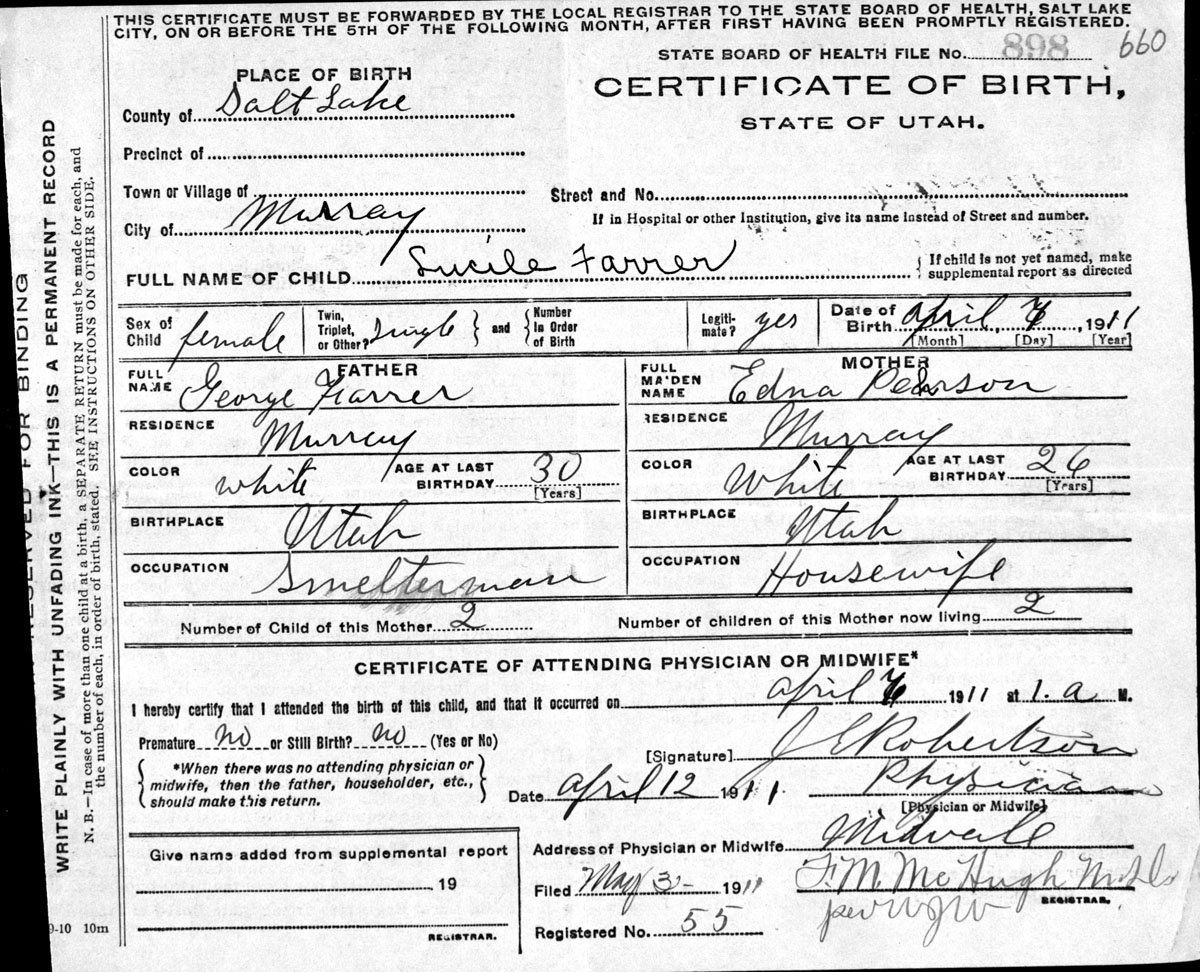 THIS CERTIFICATE MUST BE FORWARDED BY THE LOCAL REGISTRAR TO THE STATE BOARD OF HEALTH, SALT LAKE
CITY, ON OR BEFORE THE 5TH OF THE FOLLOWING MONTH, AFTER FIRST HAVING BEEN PROMPTLY REGISTERED.
STATE BOARD OF HEALTH FILE No. 898 660
PLACE OF BIRTH
CERTIFICATE OF BIRTH,
STATE OF UTAH.
County of Salt Lake
Precinct of
Town or Village of
Street and No.
If in Hospital or other Institution, give its name instead of Street and number.
City of Murray
FULL NAME OF CHILD Lucile Farrer
{ If child is not yet named, make
supplemental report as directed
Sex of
Child female
Twin,
Triplet,
or Other? Single } and { Number
in Order
of Birth
Legiti-
mate? yes
Date of
Birth April, 1911
[Month] [Day] [Year]
FATHER
FULL
NAME George Farrer
RESIDENCE Murray
COLOR white AGE AT LAST
BIRTHDAY 30
[Years]
BIRTHPLACE Utah
OCCUPATION Smelterman
MOTHER
FULL
MA'DEN
NAME Edna Pearson
RESIDENCE Murray
COLOR White AGE AT LAST
BIRTHDAY 26
[Years]
BIRTHPLACE Utah
OCCUPATION Housewife
Number of Child of this Mother 2 Number of children of this Mother now living 2
CERTIFICATE OF ATTENDING PHYSICIAN OR MIDWIFE*
I hereby certify that I attended the birth of this child, and that it occurred on April 1911 at 1. a M.
Premature no or Still Birth? no (Yes or No)
{ *When there was no attending physician or
midwife, then the father, householder, etc.,
should make this return. }
[Signature] J E Robertson
Date April 12 1911 Physician
[Physician or Midwife]
Address of Physician or Midwife Midvale
Give name added from supplemental report
19
REGISTRAR.
Filed May 3 - 1911 F. M. McHugh
REGISTRAR.
per
Registered No. 55
9-10 10m
RESERVED FOR BINDING
WRITE PLAINLY WITH UNFADING INK—THIS IS A PERMANENT RECORD
N. B.—In case of more than one child at a birth, a SEPARATE RETURN must be made for each, and
the number of each, in order of birth, stated. SEE INSTRUCTIONS ON OTHER SIDE.